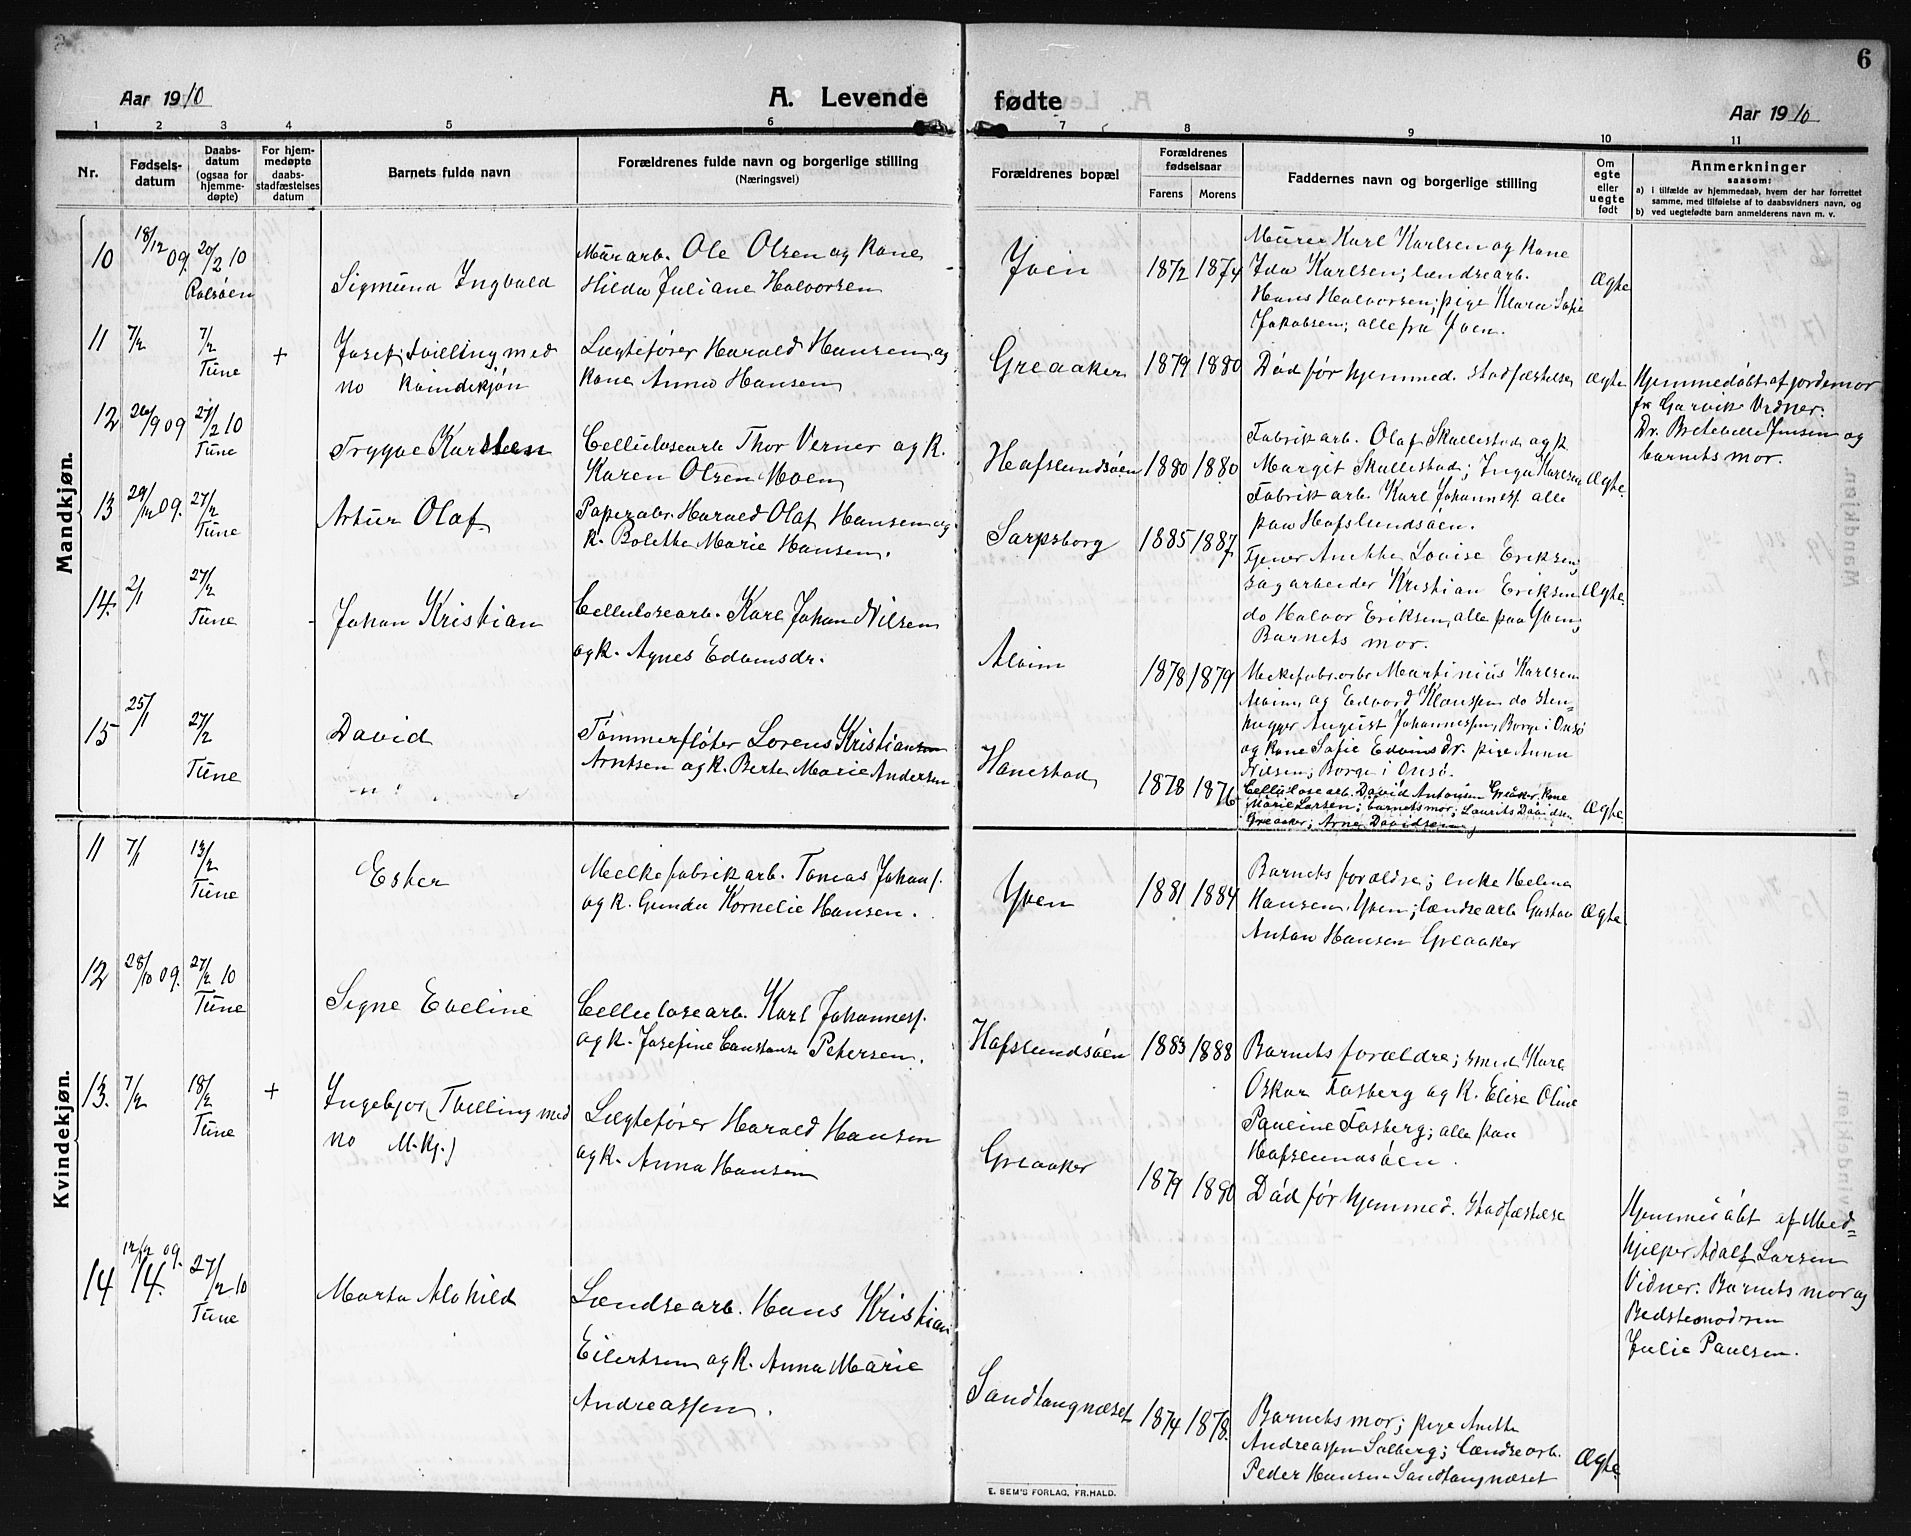 6
Aar 1910
A. Levende
fødte
Aar 1910
1 2 3 4 5 6 7 8 9 10 11
Nr.
Fødsels-
datum
Daabs-
datum
(ogsaa for
hjemme-
døpte)
For hjem-
medøpte
daabs-
stadfæstelses
datum
Barnets fulde navn
Forældrenes fulde navn og borgerlige stilling
(Næringsvei)
Forældrenes bopæl
Forældrenes
fødselsaar
Farens Morens
Faddernes navn og borgerlige stilling
Om
egte
eller
uegte
født
Anmerkninger
saasom:
a) i tilfælde av hjemmedaab, hvem der har forrettet
samme, med tilføielse af to daabsvidners navn, og
b) ved uegtefødte barn anmelderens navn m. v.
Mandkjøn.
10
18/12 09.
20/2 10
Rolsøen
Sigmund Ingvald
Murarb. Ole Olsen og kone
Hilda Juliane Halvorsen
Yven
1872 1874
Murer Karl Karlsen og kone
Ida Karlsen; lændsearb.
Hans Halvorsen; pige Klara Sofie
Jakobsen; alle fra Yven.
Ægte
11
7/2
7/2
Tune
+
Josef; Tvilling med
no kvindekjøn
Lægtefører Harald Hansen og
kone Anna Hansen
Greaaker
1879 1880
Død før hjemmed. stadfæstelse
Ægte
Hjemmedøbt af jordemor
fr. Garvik Vidner:
Dr. Jensen og
barnets mor.
12
26/9 09
27/2 10
Tune
Trygve Karsten
Cellulosearb. Thor Verner og k.
Karen Olsen Moen
Hafslundsøen
1880 1880
Fabrikarb. Olaf Skallestad og k.
Margit Skallestad; Inga Karlsen
Fabrikarb. Karl Johannesf alle
paa Hafslundsøen.
Ægte.
13
29/12 09.
27/2
Tune
Artur Olaf
Paperarb. Harald Olaf Hansen og
k. Bolethe Marie Hansen.
Sarpsborg
1885 1887
Tjener Anethe Lovise Eriksen,
sagarbeider Kristian Eriksen
do Halvor Eriksen, alle paa Yven;
Barnets mor.
Ægte.
14.
2/1
27/2
Tune
Johan Kristian
Cellulosearb. Karl Johan Nilsen
og k. Agnes Edvinsdr.
Alvim
1878 1879
Melkefabr.arb. Martinius Karlsen
Alvim og Edvard Klaussen do sten-
hugger August Johannessen, Borge i Onsø
og kone Sofie Edvinsdr. pige Anna
Nilsen, Borge i Onsø.
15
25/1
27/2
Tune
David
Tømmerfløter Lorens Kristian
Arntsen og k. Berte Marie Andersen
Hanestad
1878 1876
Cellulosearb. David Antonsen Greaker. kone
Marie Larsen; barnets mor; Laurits Davidsen
Greaaker; Arne Davidsen
Ægte
Kvindekjøn.
11
7/1
13/2
Tune
Ester
Melkefabrikarb. Tomas Johansf.
og k. Gunda Kornelie Hansen.
Yven
1881 1884
Barnets forældre; enke Helena
Hansen, Yven; lændsearb Gustav
Anton Hansen Greaaker
Ægte.
12
28/10 09.
27/2 10
Tune
Signe Eveline
Cellulosearb. Karl Johannesf.
og k. Josefine Constanse Petersen.
Hafslundsøen
1883 1888
Barnets forældre; smed Karl
Oskar Fosberg og k. Elise Oline
Pauline Fosberg; alle paa
Hafslundsøen.
13.
7/2
18/2
Tune
+
Ingebjor (Tvilling med
no M.kj.)
Lægtefører Harald Hansen
og k. Anna Hansen
Greaaker
1879 1880
Død før hjemmed. stadfæstelse
Hjemmedøbt af Med=
hjelper Adolf Larsen
Vidner. Barnets mor og
Bedstemoderen
Julie Paulsen.
14
12/12 09.
14.
27/2 10
Tune
Marta Alvhild
Lændsearb. Hans Kristian
Eilertsen og k. Anna Marie
Andreassen.
Sandtangnæset
1874 1878.
Barnets mor; pige Anethe
Andreassen Solberg; Lændsearb.
Peder Hansen Sandtangnæset
Ægte.
E. SEM'S FORLAG, FR.HALD.